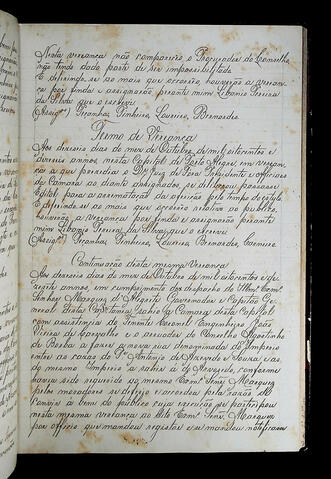 Nesta vereança não compareceo o Procurador do Conselho
não tendo dado parte de ser impossibilitado
E deferindo-se ao mais que occorreo, houverão a verean
ça por finda e assignarão perante mim Libanio Pereira
da Silva que o escrevi.
(Assigⁿ) Piranhas, Pinheiro, Loureiro, Bernardes
Termo de Vereança
Aos dezeseis dias do mez de Outubro de mil oitocentos e
dezeseis annos nesta Capital de Porto Alegre, em verean
ça a que prezidio o Dʳ Juiz de Fora Presidente e officiaes
da Camara ao diante assignados, se deliberou passasse
Edital para a arrematação da
E deferindo-se ao mais que occorreo relativo ao publico,
houverão a vereança por finda e assignarão perante
mim Libanio Pereira da Silva, que o escrevi
(Assigⁿ) Piranhas, Pinheiro, Loureiro, Bernardes,
Continuação desta mesma Vereança
Aos dezeseis dias do mez de Outubro de mil oitocentos e de
zeseis annos, em cumprimento dos despacho do Illmᵒ Exmᵒ
Senhor Marquez d'Alegrete Governador e Capitão Ge
neral desta Capitania, sahio a Camara desta Capital
com assistencia do Tenente Coronel Engenheiro João
Vieira de Carvalho e o arruador do Conselho Agostinho
de Borba a fazer a nova rua denominada do Impera
antes ao caxão do Pᵉ Antonio de Azevedo e Souza, rua do
do mesmo Imperio a sahir à d'Azevedo, conforme
havia sido requerido ao mesmo Exmᵒ Senʳ Marquez
pelos moradores se deferio e accordou pela razão de
convir a bem do publico cuja execução se participou
nesta mesma vereança ao Illmᵒ Exmᵒ Senʳ Marquez
por officio que mandou registar e se mandou notificar